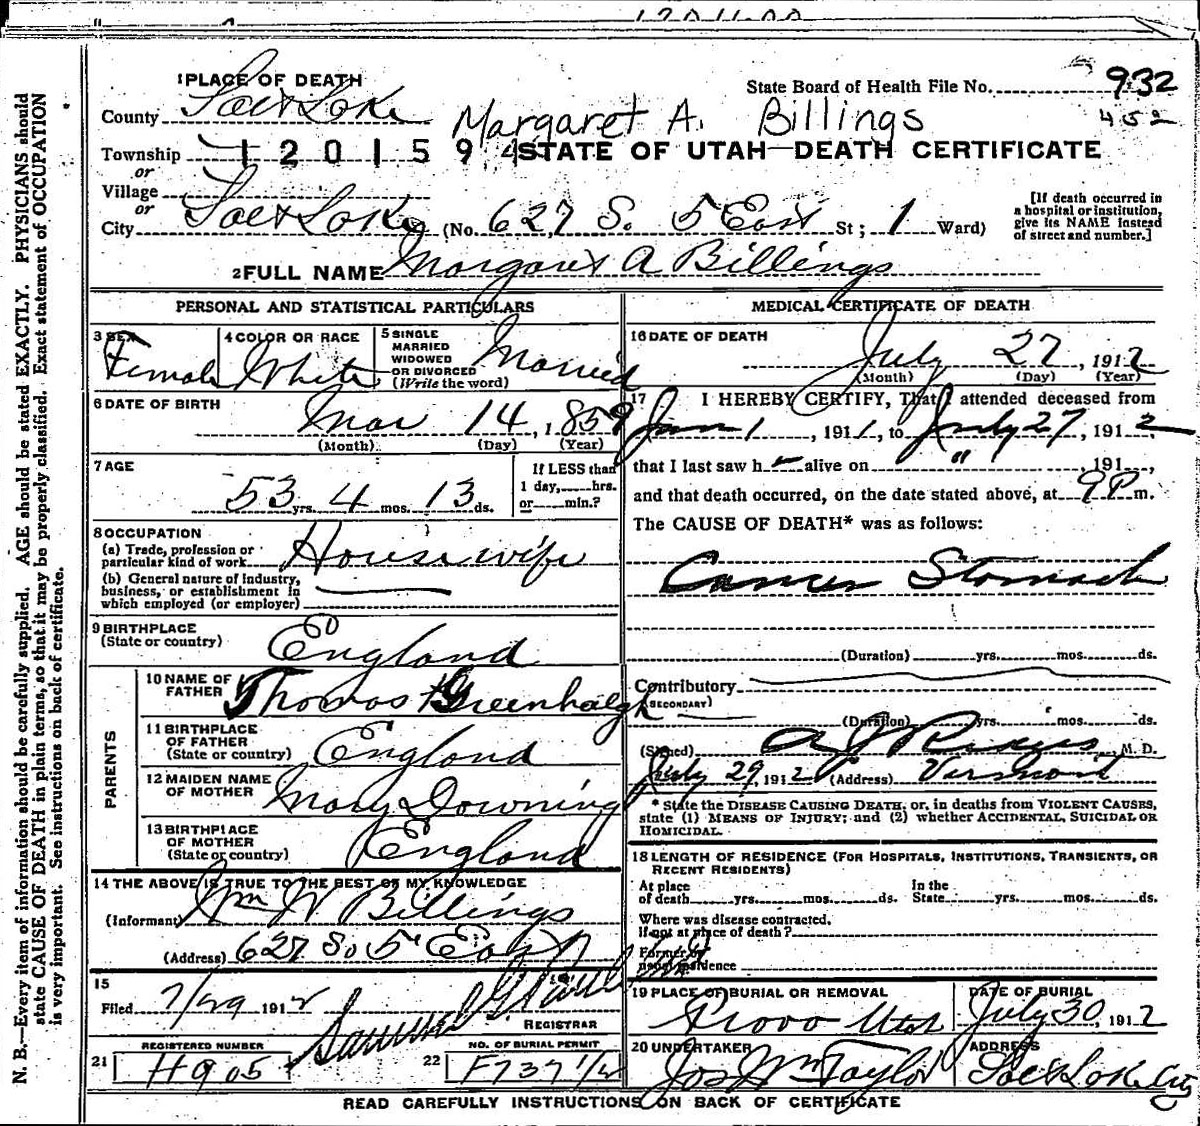 1 PLACE OF DEATH
State Board of Health File No. 932
County Salt Lake
452
Margaret A. Billings
Township
1201594
STATE OF UTAH—DEATH CERTIFICATE
or
Village
or
City Salt Lake (No. 627 So. 5 East St; 1 Ward)
[If death occurred in a hospital or institution, give its NAME instead of street and number.]
2 FULL NAME Margaret A Billings
PERSONAL AND STATISTICAL PARTICULARS
3 SEX Female
4 COLOR OR RACE White
5 SINGLE MARRIED WIDOWED OR DIVORCED (Write the word) Married
6 DATE OF BIRTH
Mar 14, 1859
(Month) (Day) (Year)
7 AGE
53 yrs. 4 mos. 13 ds.
If LESS than 1 day, hrs. or min.?
8 OCCUPATION
(a) Trade, profession or particular kind of work Housewife
(b) General nature of industry, business, or establishment in which employed (or employer)
9 BIRTHPLACE
(State or country) England
PARENTS
10 NAME OF FATHER Thomas Greenhalgh
11 BIRTHPLACE OF FATHER (State or country) England
12 MAIDEN NAME OF MOTHER Mary Downing
13 BIRTHPLACE OF MOTHER (State or country) England
14 THE ABOVE IS TRUE TO THE BEST OF MY KNOWLEDGE
(Informant) Wm W Billings
(Address) 627 So 5 East
15
Filed 7/29 1912 Samuel G.
REGISTRAR
REGISTERED NUMBER
21 H905
NO. OF BURIAL PERMIT
22 F737 1/2
MEDICAL CERTIFICATE OF DEATH
16 DATE OF DEATH
July 27, 1912
(Month) (Day) (Year)
17 I HEREBY CERTIFY, That I attended deceased from
Jan 1, 1911, to July 27, 1912
that I last saw h alive on ", 191 ,
and that death occurred, on the date stated above, at 9 P m.
The CAUSE OF DEATH* was as follows:
Cancer Stomach
(Duration) yrs. mos. ds.
Contributory
(SECONDARY)
(Duration) yrs. mos. ds.
(Signed) M. D.
July 29, 1912 (Address) Vermont
* State the DISEASE CAUSING DEATH, or, in deaths from VIOLENT CAUSES, state (1) MEANS OF INJURY; and (2) whether ACCIDENTAL, SUICIDAL OR HOMICIDAL.
18 LENGTH OF RESIDENCE (FOR HOSPITALS, INSTITUTIONS, TRANSIENTS, OR RECENT RESIDENTS)
At place of death yrs. mos. ds. In the State yrs. mos. ds.
Where was disease contracted, if not at place of death?
Former or usual residence
19 PLACE OF BURIAL OR REMOVAL
Provo Utah
DATE OF BURIAL
July 30, 1912
20 UNDERTAKER
Jos Wm Taylor
ADDRESS
Salt Lake City
READ CAREFULLY INSTRUCTIONS ON BACK OF CERTIFICATE
N. B.—Every item of information should be carefully supplied. AGE should be stated EXACTLY. PHYSICIANS should
state CAUSE OF DEATH in plain terms, so that it may be properly classified. Exact statement of OCCUPATION
is very important. See instructions on back of certificate.